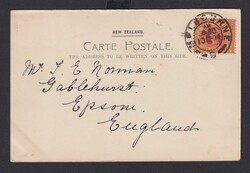 NEW ZEALAND.
CARTE POSTALE.
THE ADDRESS TO BE WRITTEN ON THIS SIDE.
MELBOURNE
Mr. T. E. Norman
Gablehurst,
Epsom,
England